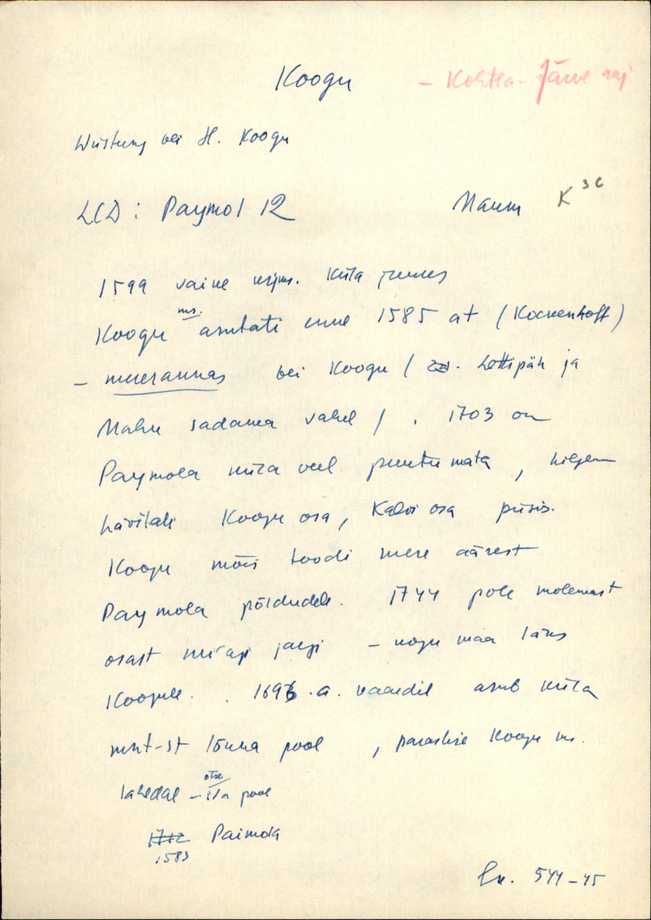 Koogu - Kohtla-Järve raj
Wüstung bei H. Koogu
LCD: Paymol 12 K 3c
1599 vaike küla
Koogu ms. asutati enne 1585 at (Kockenhoff)
- mererannas bei Koogu ( Lettipäh ja
Mahu sadama vahel). 1703 on
Paymola küla veel puutumata, hiljem
hävitati Koogu osa, Kalvi osa püsis.
Koogu mõis toodi mere äärest
Paymola põldudele. 1744 pole molemast
osast midagi järgi - kogu maa läks
Koogule. 1696.a. kaardil asub küla
mnt-st lõuna pool, praeguse Koogu ms.
lahedal - otse ida pool
1712 Paimola
1583
544-45